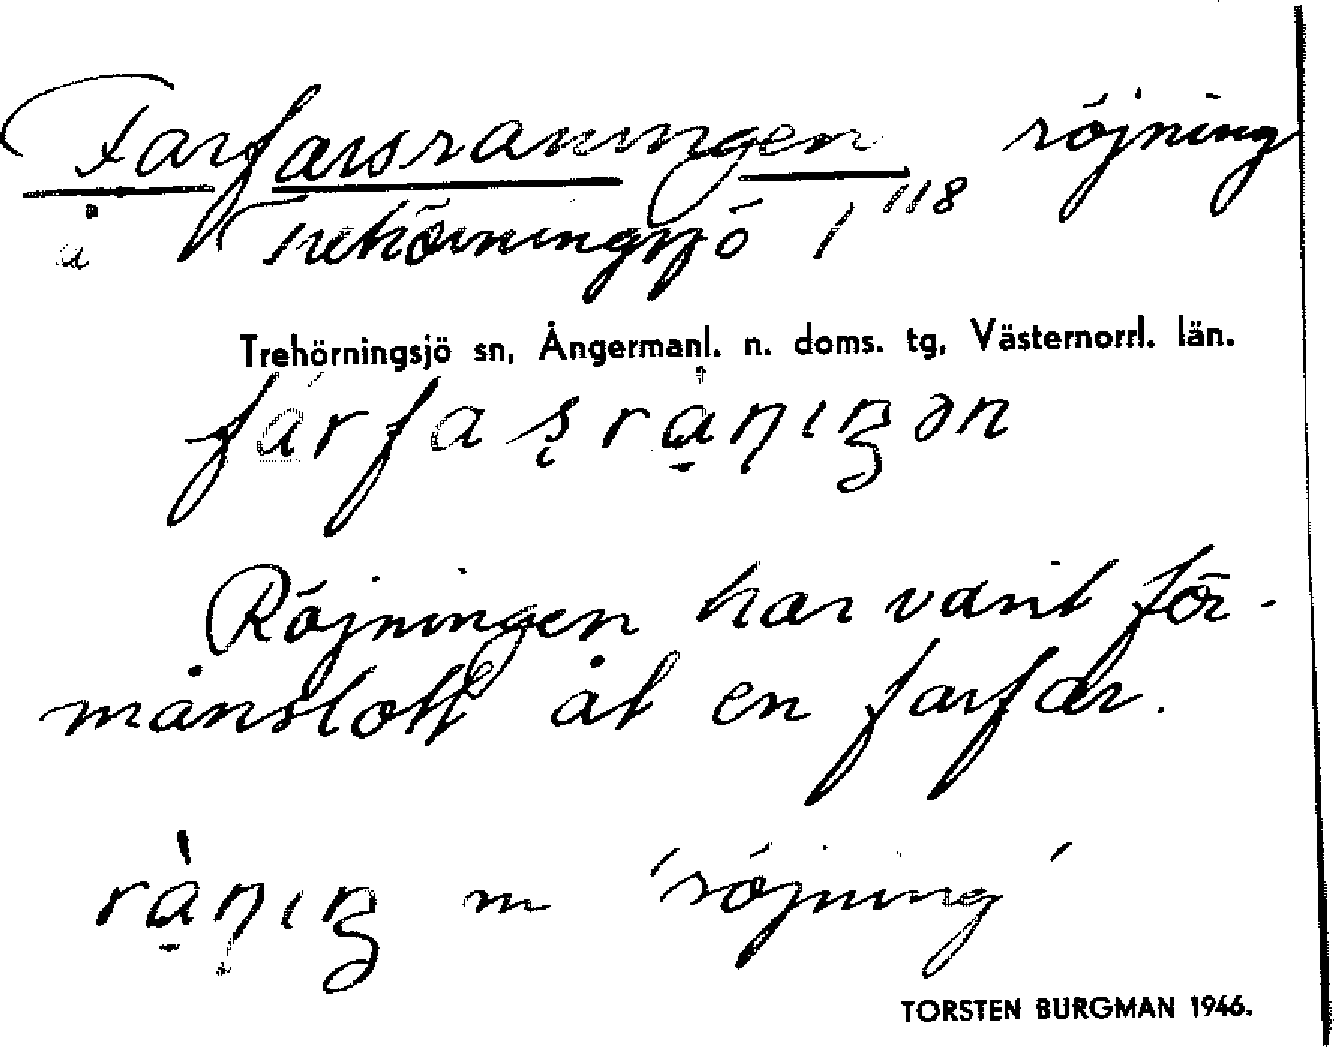 Farfarsraningen röjning
å Trehörningsjö 1¹¹⁸
Trehörningsjö sn, Ångermanl. n. doms. tg, Västernorrl. län.
fárfaʂrànıŋən
Röjningen har varit för-
månslott åt en farfar.
rànıŋ m 'röjning'
TORSTEN BURGMAN 1946.